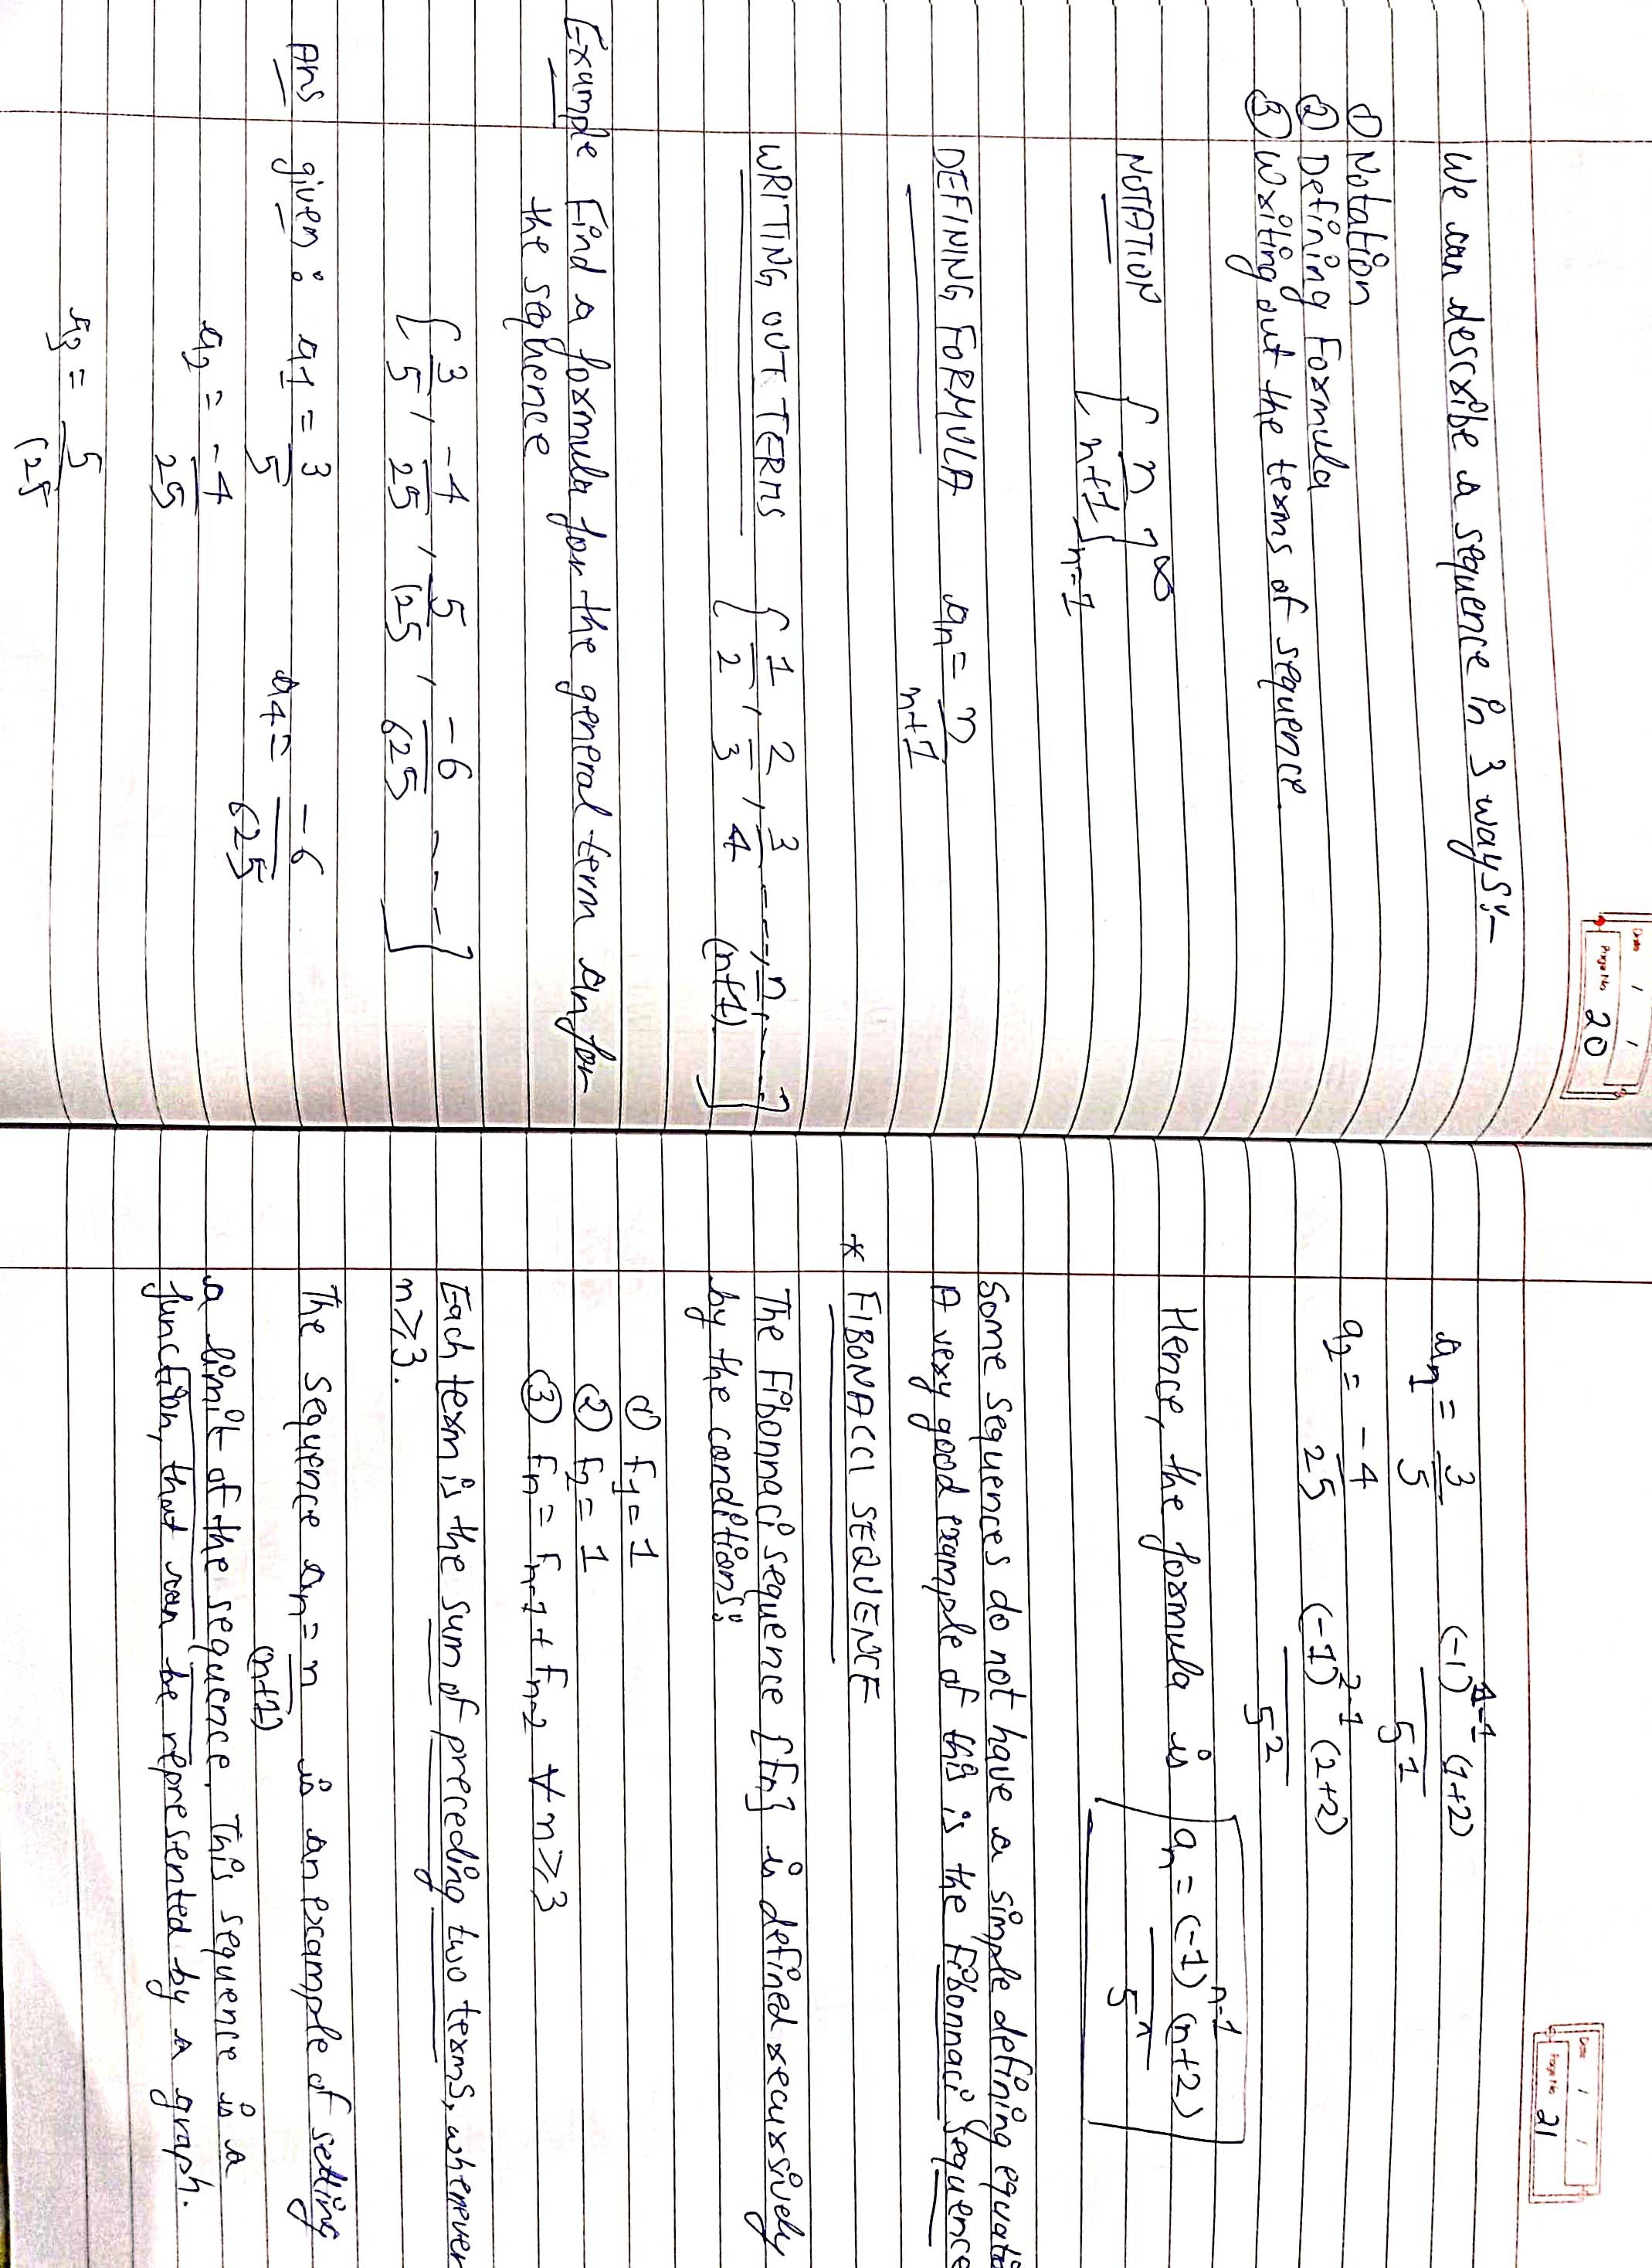 Date / /
Page No 20
We can describe a sequence in 3 ways:-
① Notation
② Defining Formula
③ Writing out the terms of sequence.
NOTATION { n/n+1 }∞ n=1
DEFINING FORMULA an = n/n+1
WRITING OUT TERMS { 1/2, 2/3, 3/4 ----, n/(n+1), ---- }
Example Find a formula for the general term an for
the sequence
{ 3/5, -4/25, 5/125, -6/625 ---- }
Ans given: a1 = 3/5 a4 = -6/625
a2 = -4/25
a3 = 5/125
Date / /
Page No 21
a1 = 3/5 (-1)^1-1 (1+2)/5^1
a2 = -4/25 (-1)^2-1 (2+2)/5^2
Hence, the formula is an = (-1)^n-1 (n+2)/5^n
Some sequences do not have a simple defining
A very good example of this is the Fibonnaci Sequence
* FIBONACCI SEQUENCE
The Fibonnaci sequence {fn} is defined recursively
by the conditions:
① f1 = 1
② f2 = 1
③ fn = fn-1 + fn-2 ∀ n≥3
Each term is the sum of preceding two terms, whenever
n≥3.
The sequence an = n/(n+1) is an example of setting
a limit of the sequence. This sequence is a
function, that can be represented by a graph.